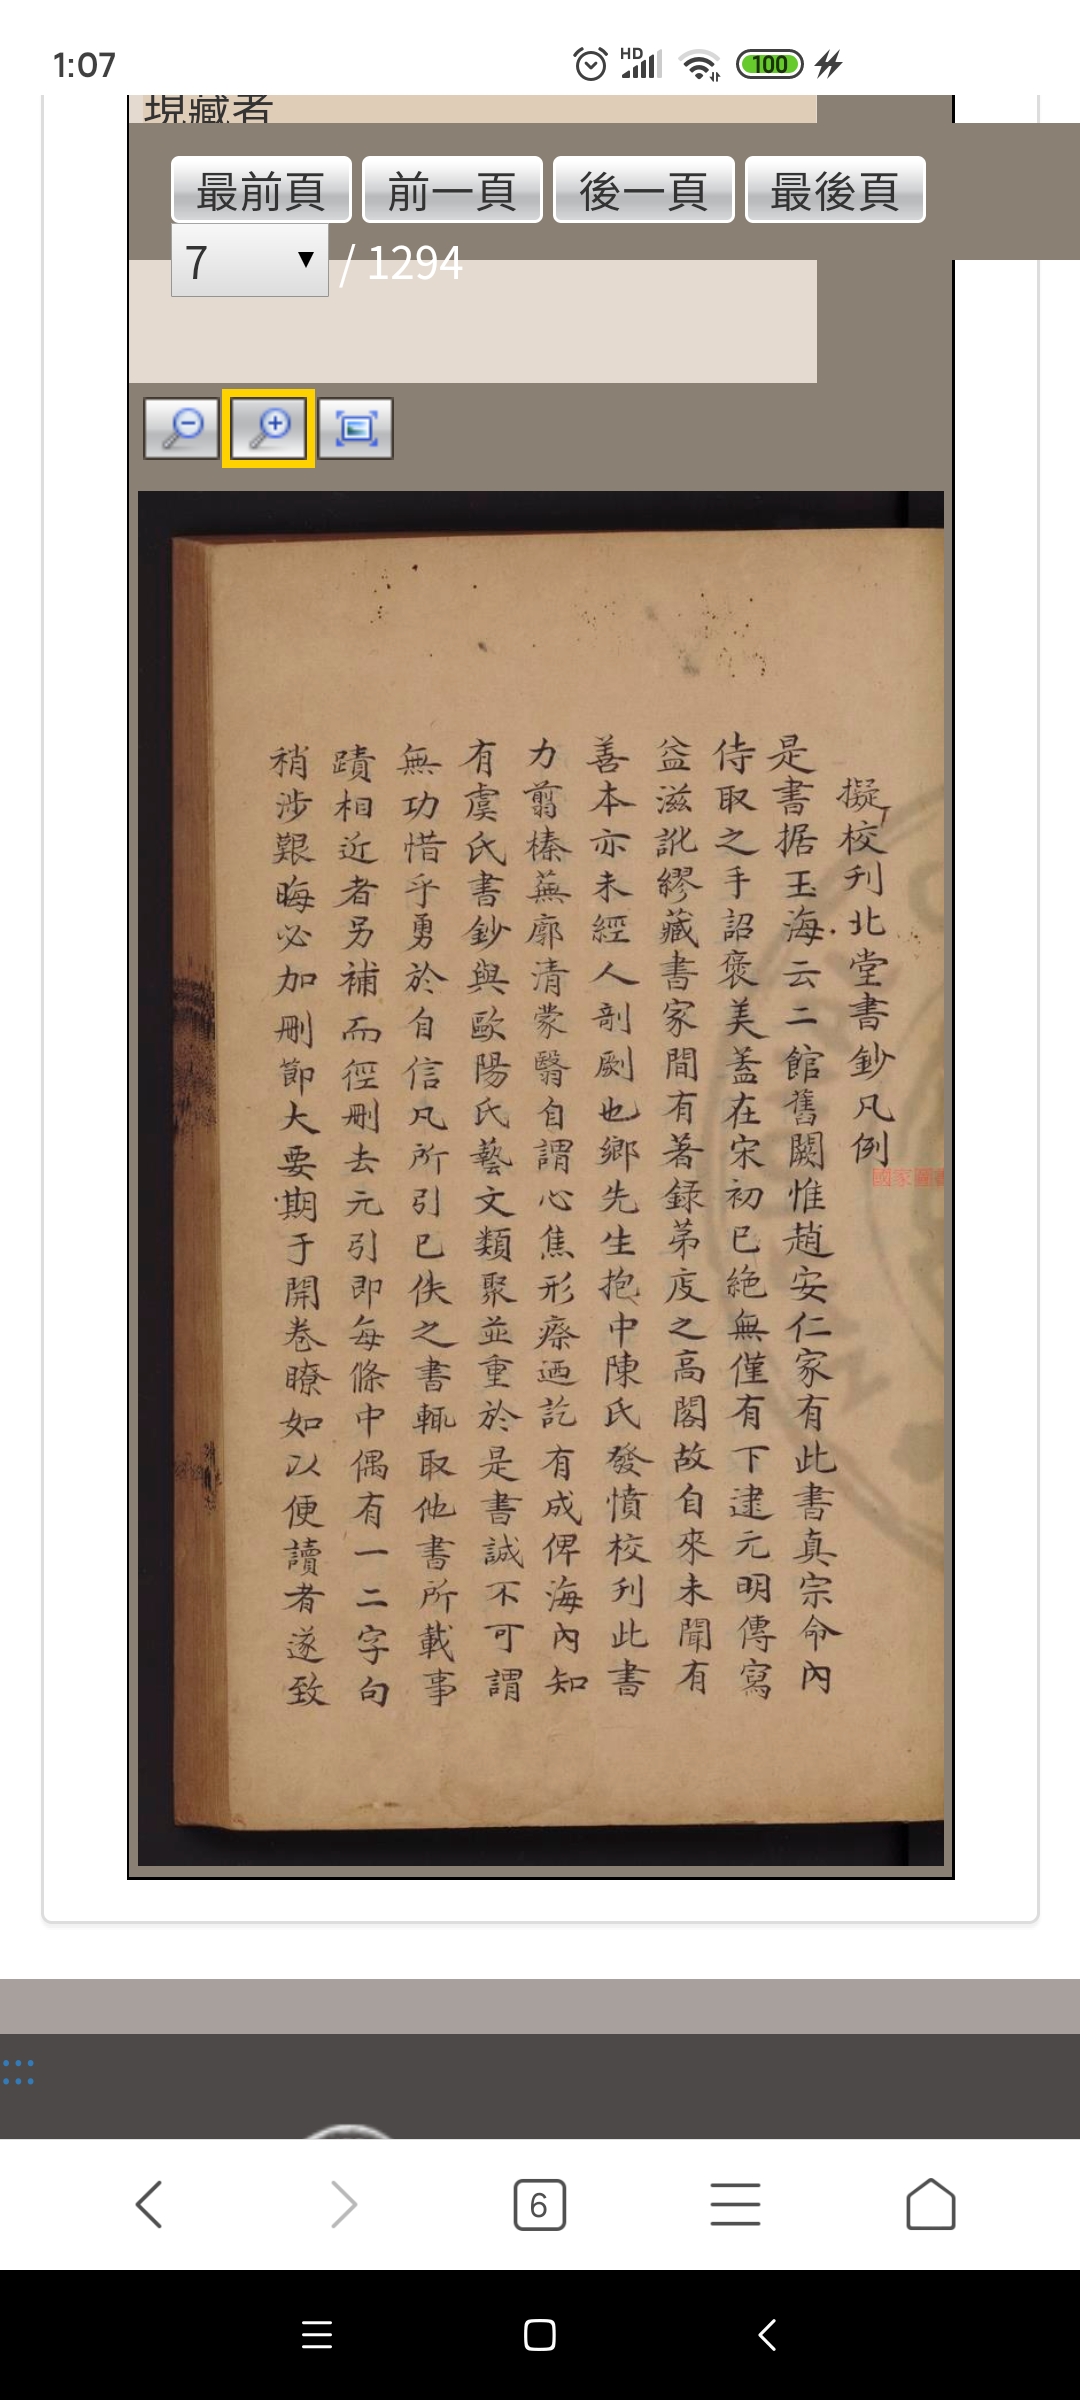 1:07
HD
100
現藏者
最前頁 前一頁 後一頁 最後頁
7 / 1294
擬校刊北堂書鈔凡例
是書据玉海云二館舊闕惟趙安仁家有此書真宗命內
侍取之手詔褒美蓋在宋初已絕無僅有下逮元明傳寫
益滋訛繆藏書家間有著録苐庋之高閣故自來未聞有
善本亦未經人剞劂也鄉先生抱中陳氏發憤校刊此書
力翦榛蕪廓清蒙翳自謂心焦形瘵迺訖有成俾海內知
有虞氏書鈔與歐陽氏藝文類聚並重於是書誠不可謂
無功惜乎勇於自信凡所引已佚之書輒取他書所載事
蹟相近者另補而徑刪去元引即每條中偶有一二字句
稍涉艱晦必加刪節大要期于開卷瞭如以便讀者遂致
國家圖
6